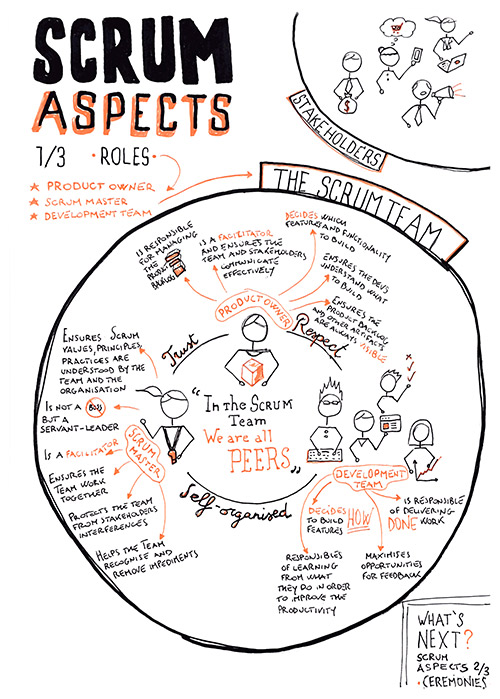 SCRUM
ASPECTS
1/3 • ROLES •
★ PRODUCT OWNER
★ SCRUM MASTER
★ DEVELOPMENT TEAM
STAKEHOLDERS
$
THE SCRUM TEAM
IS RESPONSIBLE
FOR MANAGING
THE
PRODUCT
BACKLOG
IS A FACILITATOR
AND ENSURES THE
TEAM AND STAKEHOLDERS
COMMUNICATE
EFFECTIVELY
DECIDES WHICH
FEATURES AND FUNCTIONALITY
TO BUILD
ENSURES THE DEVS
UNDERSTAND WHAT
TO BUILD
ENSURES THE
PRODUCT BACKLOG
AND OTHER ARTIFACTS
ARE ALWAYS VISIBLE
PRODUCT OWNER
Trust
Respect
Self-organised
"In the SCRUM
Team
We are all
PEERS"
ENSURES SCRUM
VALUES, PRINCIPLES,
PRACTICES ARE
UNDERSTOOD BY THE
TEAM AND THE
ORGANISATION
IS NOT A BOSS
BUT A
SERVANT-LEADER
IS A FACILITATOR
ENSURES THE
TEAM WORK
TOGETHER
PROTECTS THE TEAM
FROM STAKEHOLDERS
INTERFERENCES
HELPS THE TEAM
RECOGNISE AND
REMOVE IMPEDIMENTS
SCRUM
MASTER
DEVELOPMENT
TEAM
DECIDES HOW
TO BUILD
FEATURES
IS RESPONSIBLE
OF DELIVERING
DONE WORK
RESPONSIBLES
OF LEARNING
FROM WHAT
THEY DO IN ORDER
TO IMPROVE THE
PRODUCTIVITY
MAXIMISES
OPPORTUNITIES
FOR FEEDBACK
WHAT'S
NEXT?
SCRUM
ASPECTS 2/3
• CEREMONIES